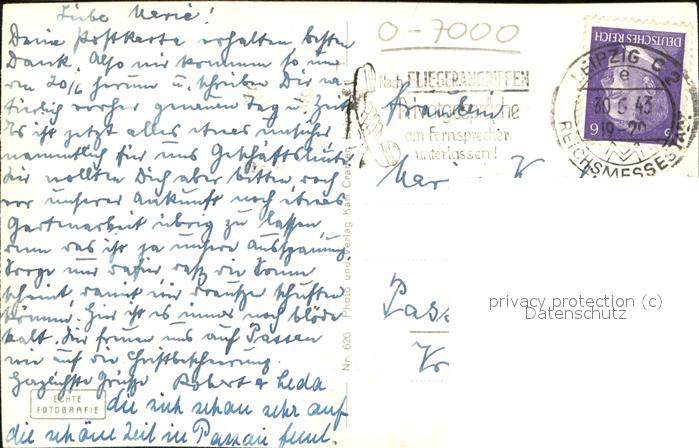 Liebe Marie!
Deine Postkarte erhalten besten
Dank. Also wir kommen so um
den 20/6 herum u. schreiben Dir na-
türlich vorher genauen Tag u. Zeit
Es ist jetzt alles etwas unsicher
namentlich für uns Geschäftsleute
Wir wollten Dich aber bitten, noch
vor unserer Ankunft noch etwas
Gartenarbeit übrig zu lassen,
denn das ist ja unsere Ausspannung
Sorge nur dafür daß die Sonne
scheint, damit wir draußen schuften
können. Hier ist es immer noch blöde
kalt. Wir freuen uns auf Passau
wie auf die Christbescherung.
Herzlichste Grüße Robert & Leda.
die sich schon sehr auf
die schöne Zeit in Passau freut.
ECHTE
FOTOGRAFIE
Nr. 626 Photo und Verlag Karl
0-7000
Nach FLIEGERANGRIFFEN
Privatgespräche
am Fernsprecher
unterlassen!
DEUTSCHES REICH
6 6
LEIPZIG C 2
e
30.6.43
19-20
REICHSMESSESTADT
Fräulein
Marie K
Pass
privacy protection (c)
Datenschutz